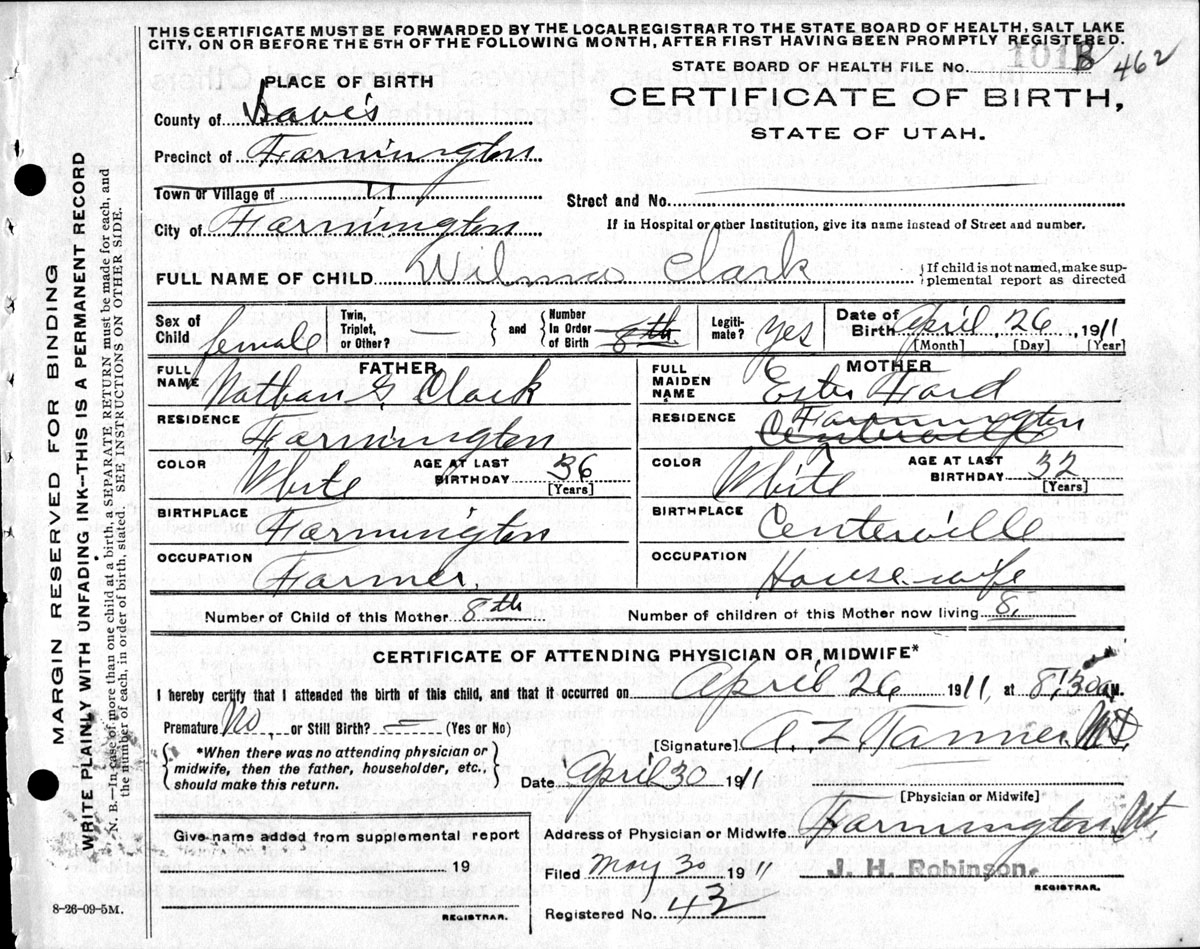 THIS CERTIFICATE MUST BE FORWARDED BY THE LOCAL REGISTRAR TO THE STATE BOARD OF HEALTH, SALT LAKE
CITY, ON OR BEFORE THE 5TH OF THE FOLLOWING MONTH, AFTER FIRST HAVING BEEN PROMPTLY REGISTERED.
STATE BOARD OF HEALTH FILE NO. 101 B 462
PLACE OF BIRTH
CERTIFICATE OF BIRTH,
STATE OF UTAH.
County of Davis
Precinct of Farmington
Town or Village of
Street and No.
City of Farmington
If in Hospital or other Institution, give its name instead of Street and number.
FULL NAME OF CHILD Wilma Clark
If child is not named, make sup-
plemental report as directed
Sex of Child female
Twin, Triplet, or Other? —
and Number In Order of Birth 8th
Legiti-mate? yes
Date of Birth April 26, 1911
[Month] [Day] [Year]
FATHER
FULL NAME Nathan G. Clark
RESIDENCE Farmington
COLOR White AGE AT LAST BIRTHDAY 36 [Years]
BIRTHPLACE Farmington
OCCUPATION Farmer.
MOTHER
FULL MAIDEN NAME Ester Ford
RESIDENCE Farmington
Centerville
COLOR White AGE AT LAST BIRTHDAY 32 [Years]
BIRTHPLACE Centerville
OCCUPATION House-wife
Number of Child of this Mother 8th
Number of children of this Mother now living 8.
CERTIFICATE OF ATTENDING PHYSICIAN OR MIDWIFE*
I hereby certify that I attended the birth of this child, and that it occurred on April 26 1911, at 8:30 a M.
Premature No, or Still Birth? — (Yes or No)
*When there was no attending physician or
midwife, then the father, householder, etc.,
should make this return.
[Signature] A. Z. Tanner M.D.
Date April 30 1911
[Physician or Midwife]
Give name added from supplemental report
19
REGISTRAR.
Address of Physician or Midwife Farmington, Ut.
Filed May 30 1911
J. H. Robinson.
REGISTRAR.
Registered No. 43
8-26-09-5M.
MARGIN RESERVED FOR BINDING
WRITE PLAINLY WITH UNFADING INK--THIS IS A PERMANENT RECORD
N. B.—In case of more than one child at a birth, a SEPARATE RETURN must be made for each, and
the number of each, in order of birth, stated. SEE INSTRUCTIONS ON OTHER SIDE.